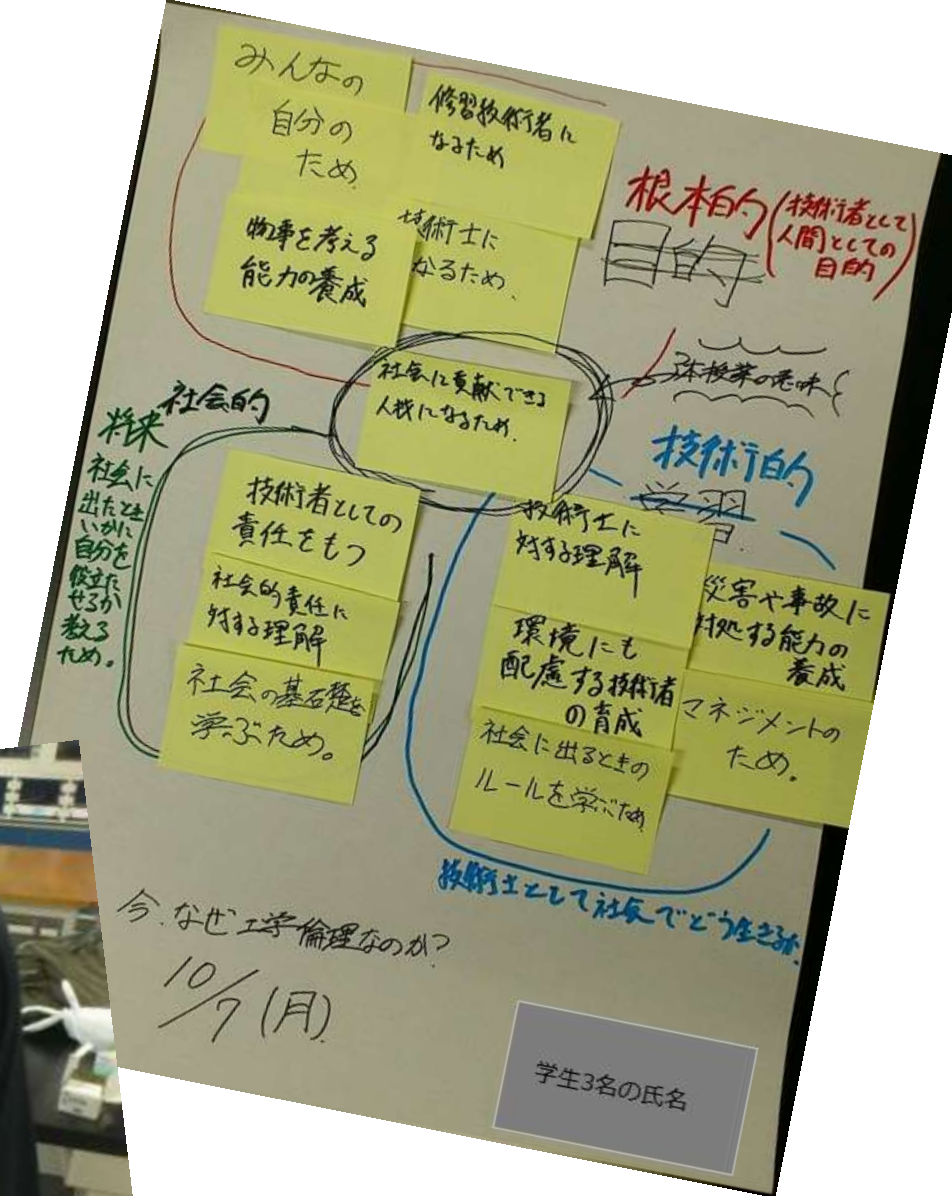 みんなの
自分の
ため
修習技術者に
なるため
物事を考える
能力の養成
技術士に
なるため、
根本的
(技術者として
人間としての
目的)
目的
社会に貢献できる
人材になるため.
本授業の意味
社会的
将来
社会に
出たとき
いかに
自分を
役立た
せるか
考える
ため。
技術者としての
責任をもつ
社会的責任に
対する理解
社会の基礎を
学ぶため。
技術的
学習
技術士に
対する理解
環境にも
配慮する技術者
の育成
社会に出るときの
ルールを学ぶため
災害や事故に
対処する能力の
養成
マネジメントの
ため。
技術士として社会でどう生きるか.
今、なぜ工学倫理なのか?
10/7(月)
学生3名の氏名